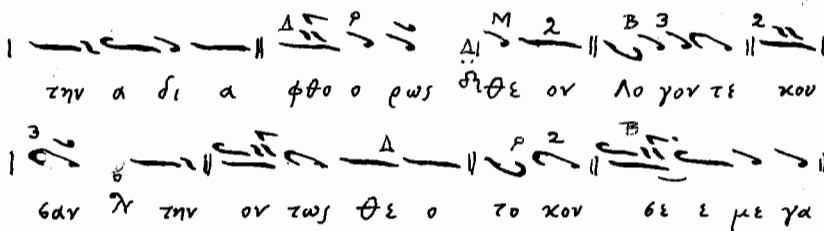 την α δι α φθο ο ρως θε ον Λο γον τε κου
σαν την ον τως θε ο το κον σε ε με γα